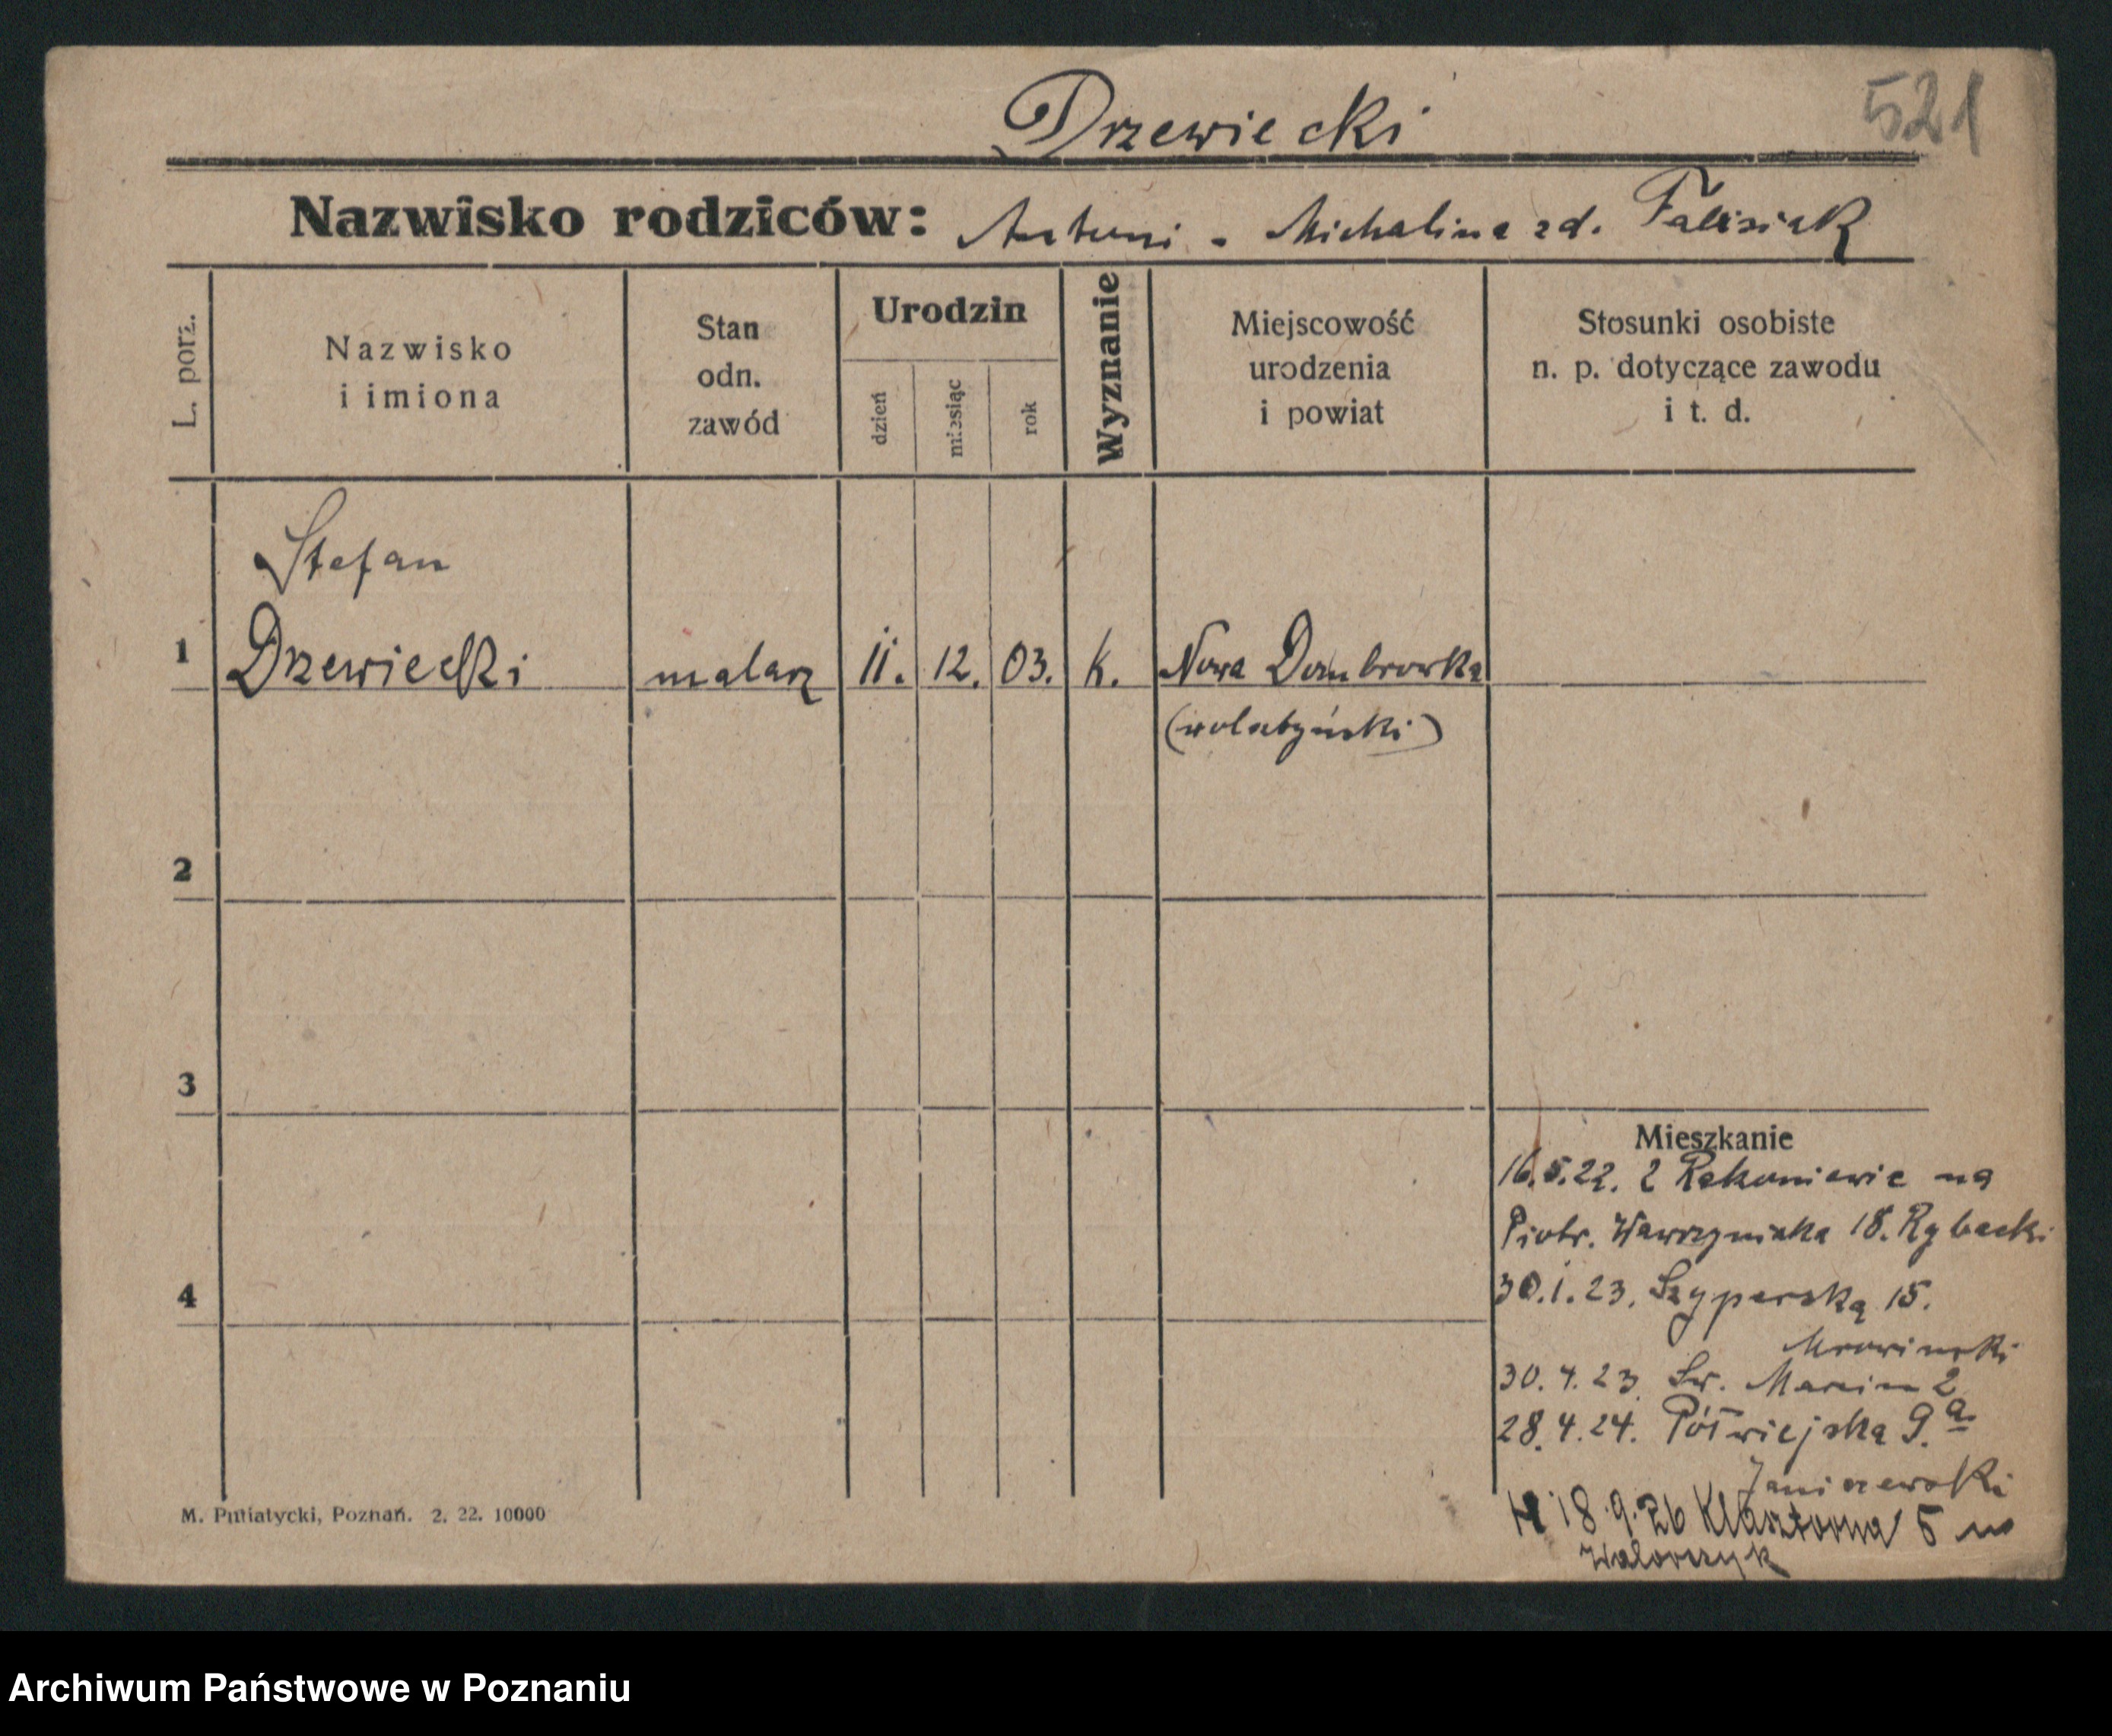 Drzewiecki
521
Nazwisko rodziców: Antoni - Michalina zd.
L. porz.
Nazwisko
i imiona
Stan
odn.
zawód
Urodzin
dzień
miesiąc
rok
Wyznanie
Miejscowość
urodzenia
i powiat
Stosunki osobiste
n. p. dotyczące zawodu
i t. d.
Stefan
1 Drzewiecki malarz 11. 12. 03. k. Nowa Dombrowka
(wolsztyński)
2
3
4
Mieszkanie
16.5.22. z Rakoniewic na
Piotr. Wawrzyniaka 18. Rybacki
30.1.23. Szyperska 15.
Mrowinski
30.4.23 Sw. Marcin 2
28.4.24. Półwiejska 9.a
Janiszewski
18.9.26 Klasztorna 5
M. Putiatycki, Poznań. 2. 22. 10000
Archiwum Państwowe w Poznaniu